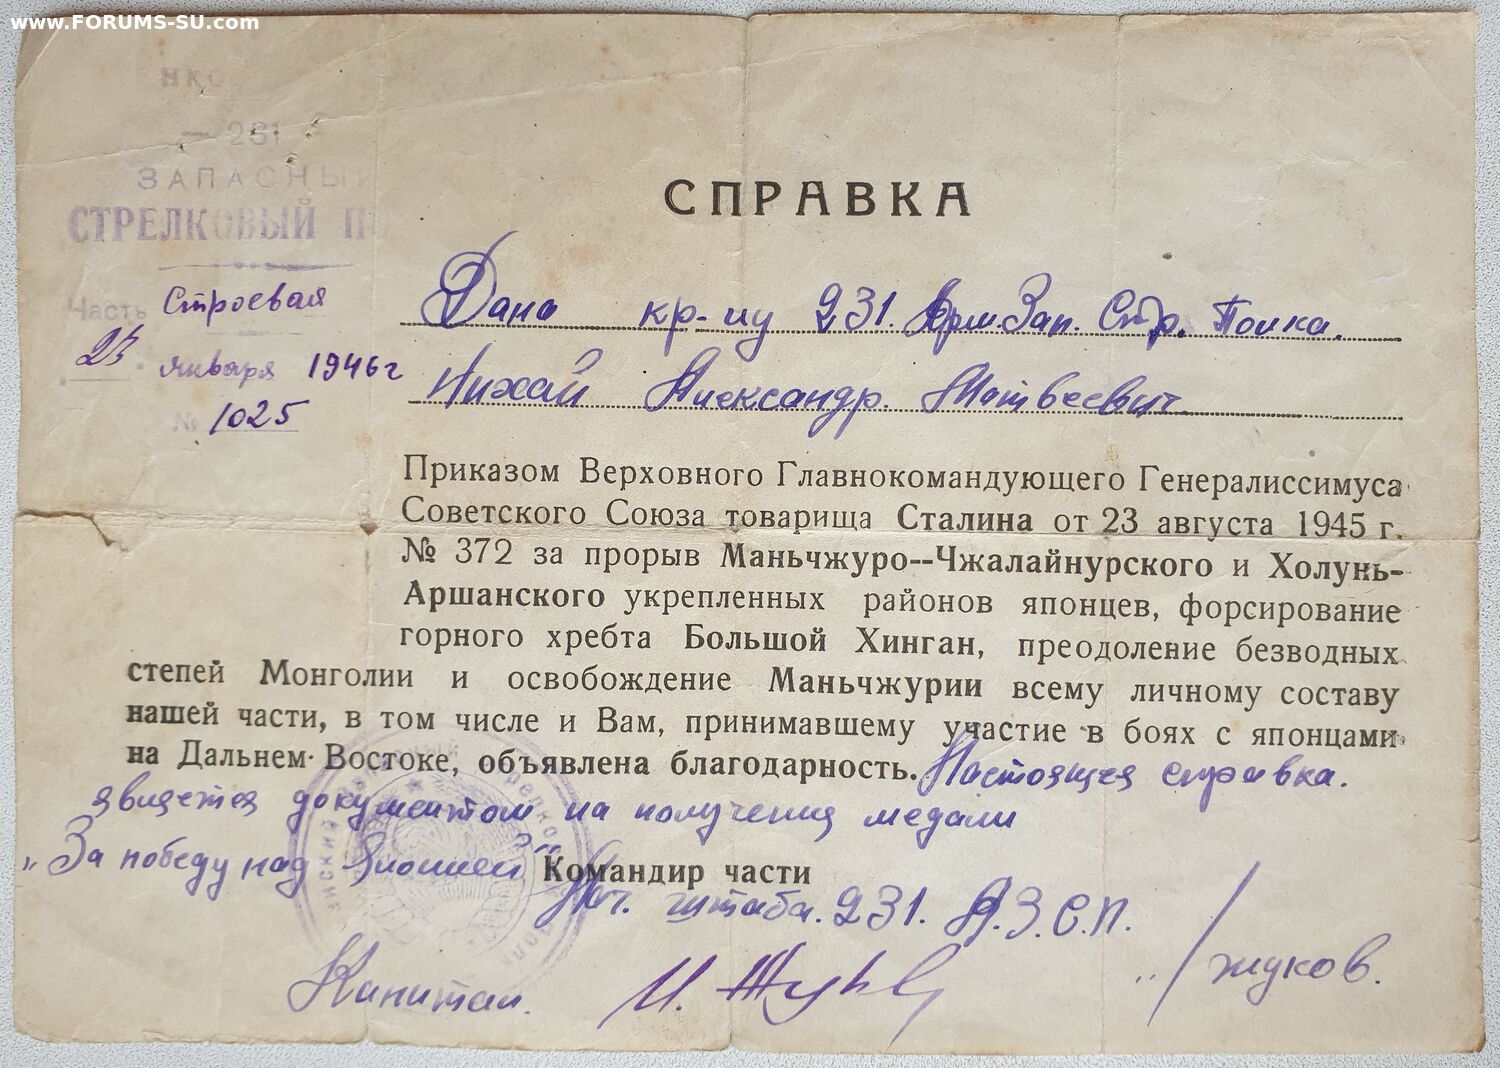 www.FORUMS-SU.com
НКО
— 231
ЗАПАСНЫЙ
СТРЕЛКОВЫЙ П
Часть Строевая
23 января 1946 г
№ 1025
СПРАВКА
Дана кр-цу 231. Арм. Зап. Стр. Полка.
Михай Александр. Матвеевич.
Приказом Верховного Главнокомандующего Генералиссимуса
Советского Союза товарища Сталина от 23 августа 1945 г.
№ 372 за прорыв Маньчжуро--Чжалайнурского и Холунь-
Аршанского укрепленных районов японцев, форсирование
горного хребта Большой Хинган, преодоление безводных
степей Монголии и освобождение Маньчжурии всему личному составу
нашей части, в том числе и Вам, принимавшему участие в боях с японцами
на Дальнем Востоке, объявлена благодарность. Настоящая справка.
является документом на получения медали
„За победу над Японией“ Командир части
Нач. штаба. 231. А.З.С.П.
Капитан. И. Жуков /Жуков.